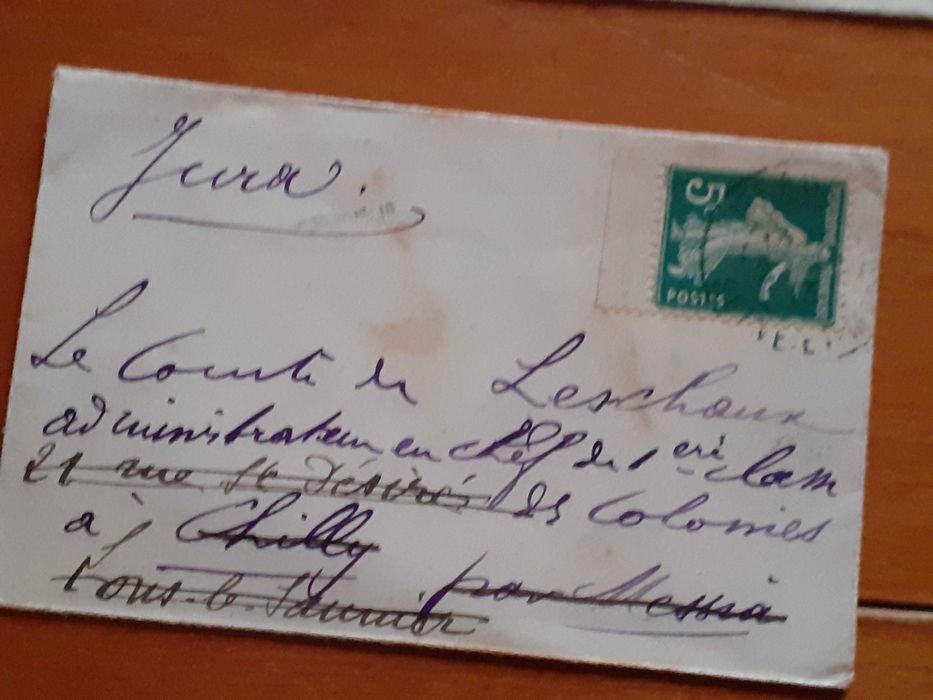 Jura.
5
POSTES
Le Comte de Leschaux
administrateur en chef de 1ere classe
21 rue St Désiré des Colonies
à Chilly par Messia
Lons-le-Saunier